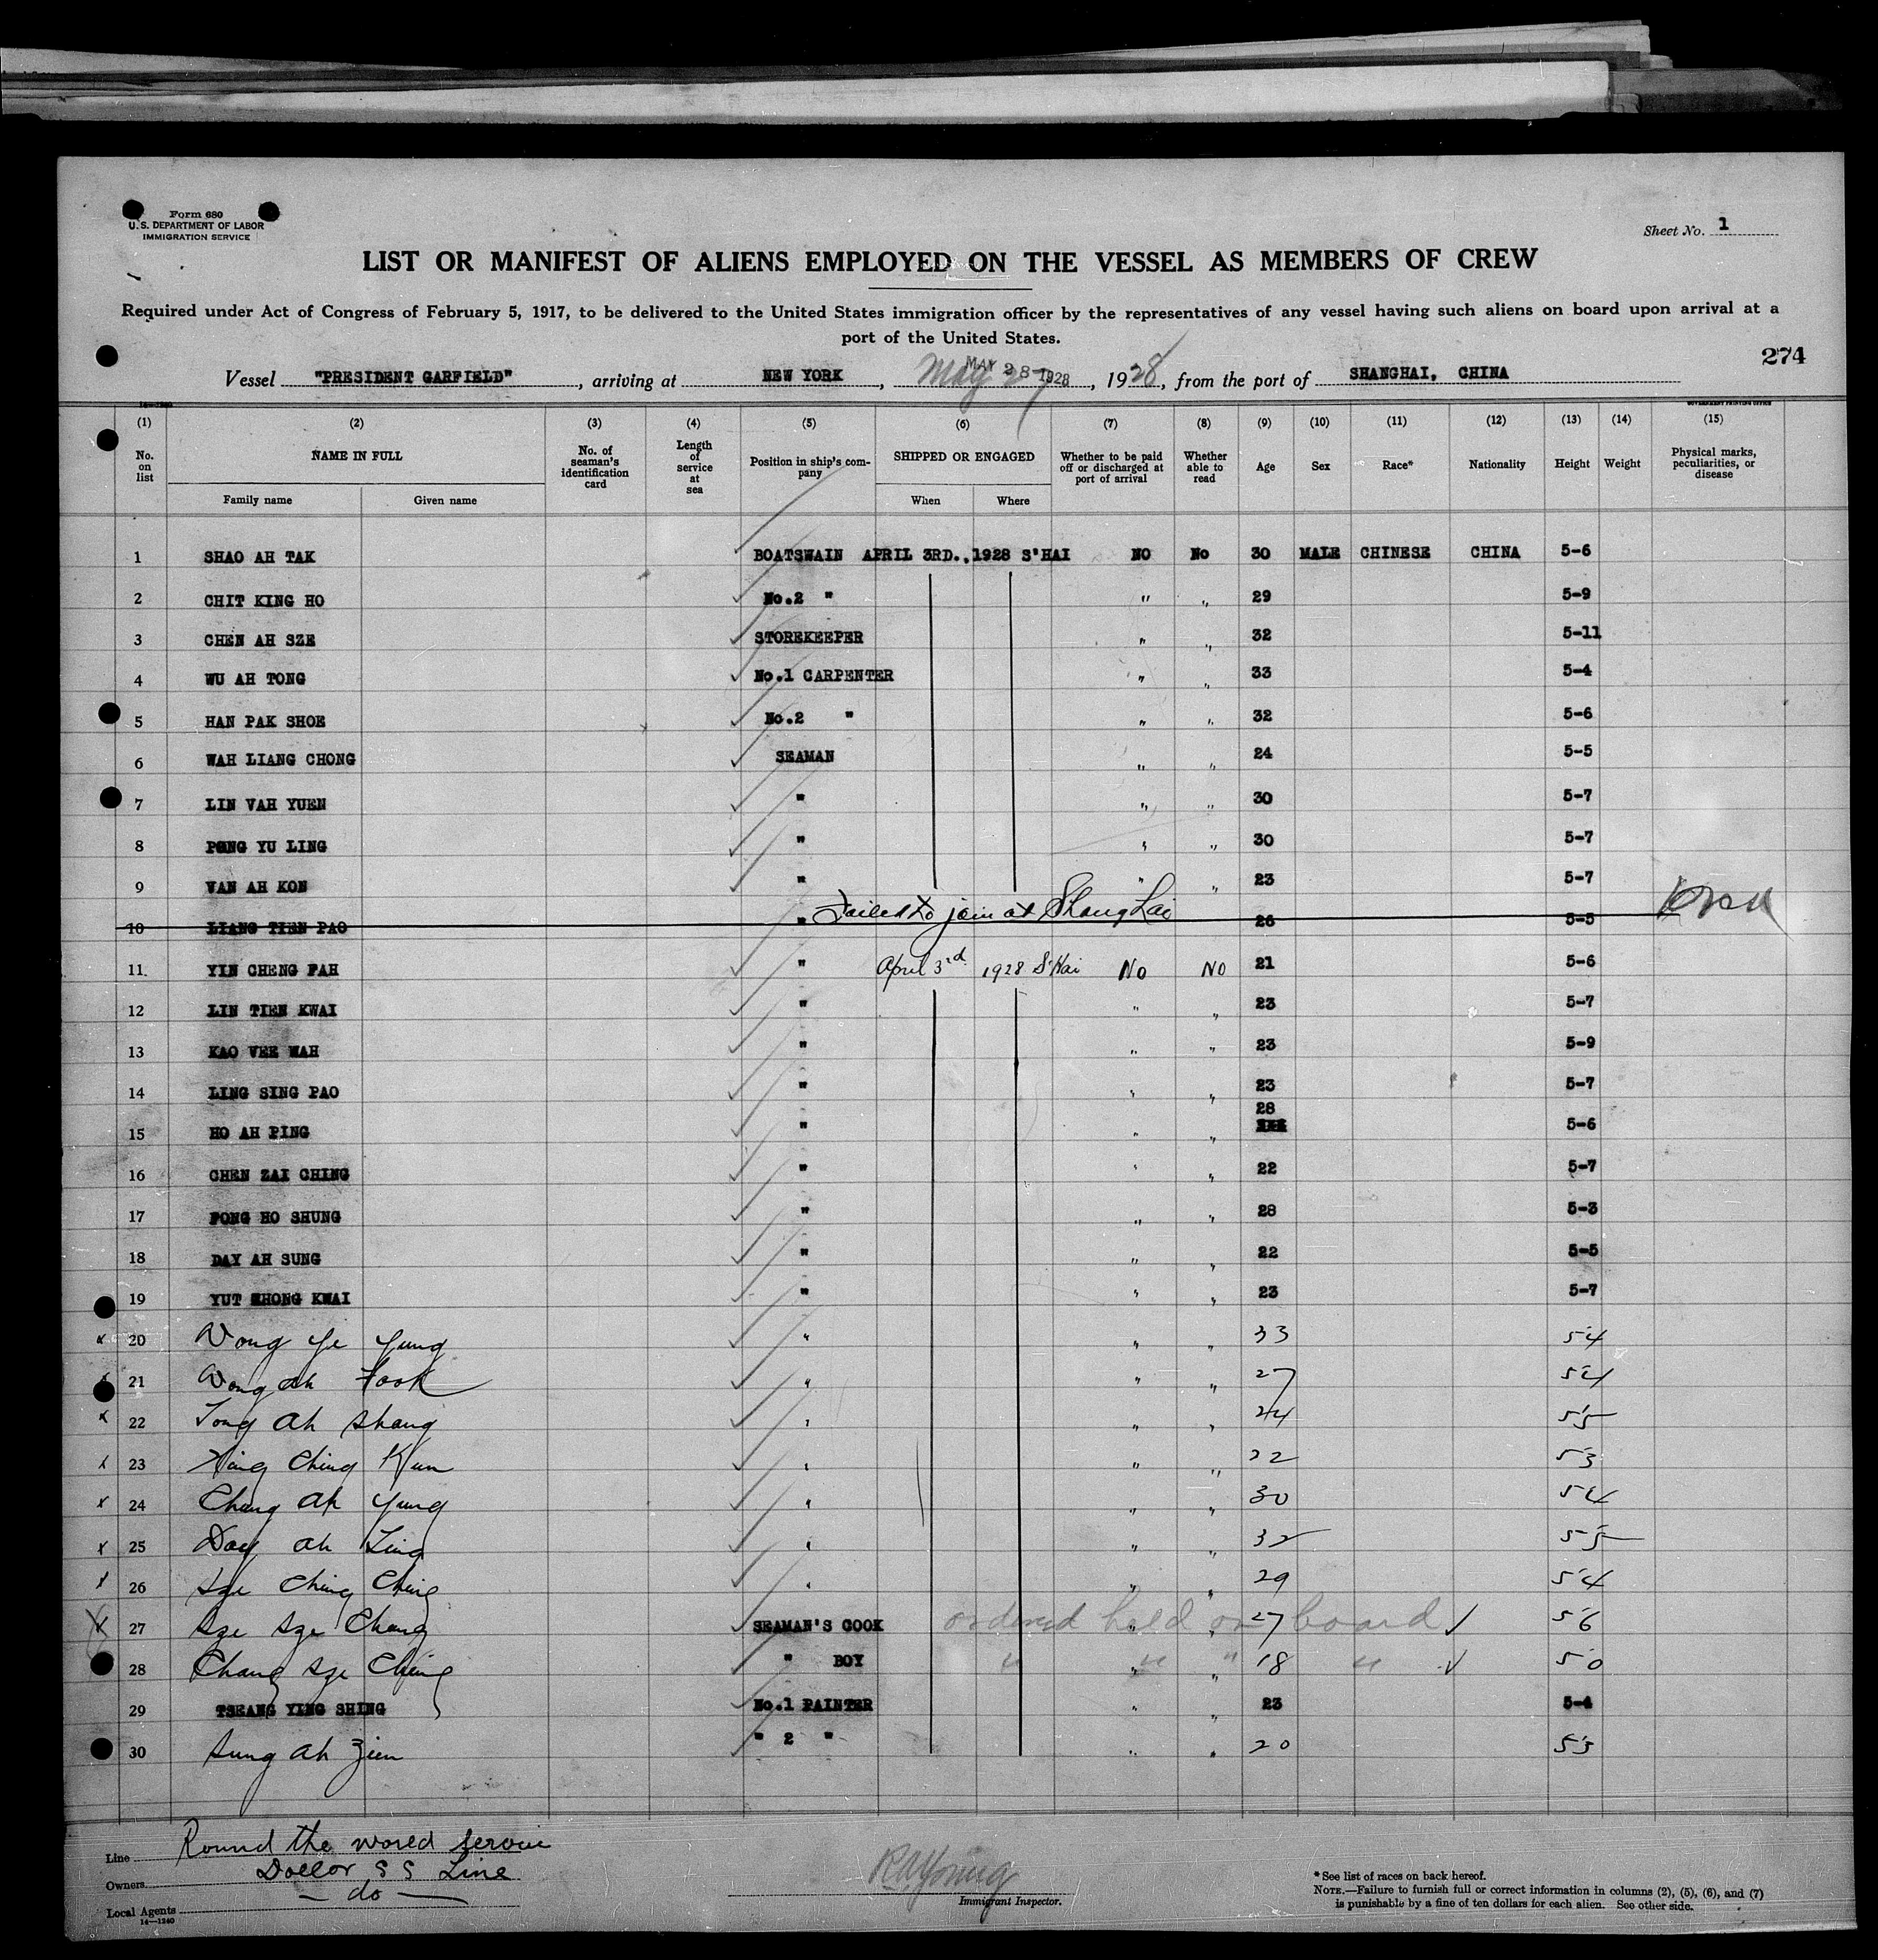 Form 680
U. S. DEPARTMENT OF LABOR
IMMIGRATION SERVICE
Sheet No. 1
LIST OR MANIFEST OF ALIENS EMPLOYED ON THE VESSEL AS MEMBERS OF CREW
Required under Act of Congress of February 5, 1917, to be delivered to the United States immigration officer by the representatives of any vessel having such aliens on board upon arrival at a
port of the United States.
274
Vessel "PRESIDENT GARFIELD", arriving at NEW YORK, May 27 MAY 28 1928, 1928, from the port of SHANGHAI, CHINA
GOVERNMENT PRINTING OFFICE
(1) (2) (3) (4) (5) (6) (7) (8) (9) (10) (11) (12) (13) (14) (15)
No. on list NAME IN FULL Family name Given name No. of seaman's identification card Length of service at sea Position in ship's company SHIPPED OR ENGAGED When Where Whether to be paid off or discharged at port of arrival Whether able to read Age Sex Race* Nationality Height Weight Physical marks, peculiarities, or disease
1 SHAO AH TAK BOATSWAIN APRIL 3RD., 1928 S'HAI NO No 30 MALE CHINESE CHINA 5-6
2 CHIT KING HO No.2 " " " 29 5-9
3 CHEN AH SZE STOREKEEPER " " 32 5-11
4 WU AH TONG No.1 CARPENTER " " 33 5-4
5 HAN PAK SHOE No.2 " " " 32 5-6
6 WAH LIANG CHONG SEAMAN " " 24 5-5
7 LIN VAH YUEN " " " 30 5-7
8 PONG YU LING " " " 30 5-7
9 VAN AH KON " " " 23 5-7
10 LIANG TIEN PAO " Failed to join at Shang Hai 26 5-5
11 YIN CHENG FAH " April 3rd 1928 S'Hai No NO 21 5-6
12 LIN TIEN KWAI " " " 23 5-7
13 KAO VEE WAH " " " 23 5-9
14 LING SING PAO " " " 23 5-7
15 HO AH PING " " " 28 5-6
16 CHEN ZAI CHING " " " 22 5-7
17 FONG HO SHUNG " " " 28 5-3
18 DAY AH SUNG " " " 22 5-5
19 YUT ZHONG KWAI " " " 23 5-7
x 20 Wong Ye Yung " " " 33 5-4
x 21 Wong Ah Fook " " " 27 5-4
x 22 Tong Ah Shang " " " 24 5-5
x 23 Ching Kun " " " 22 5-3
x 24 Chang Ah Yung " " " 30 5-4
x 25 Day Ah Ling " " " 32 5-5
x 26 Sze Ching Ching " " " 29 5-4
x 27 Sze Sze Chang SEAMAN'S COOK ordered held on board " " 27 5-6
28 Chang Sze Ching " BOY " " " " 18 5-0
29 TSEANG YING SHING No.1 PAINTER " " 23 5-4
30 Sung Ah Zien " 2 " " " 20 5-3
Line Round the world service
Owners Dollar S S Line
Local Agents — do —
14—1240
R A Young
Immigrant Inspector.
* See list of races on back hereof.
NOTE.—Failure to furnish full or correct information in columns (2), (5), (6), and (7)
is punishable by a fine of ten dollars for each alien. See other side.